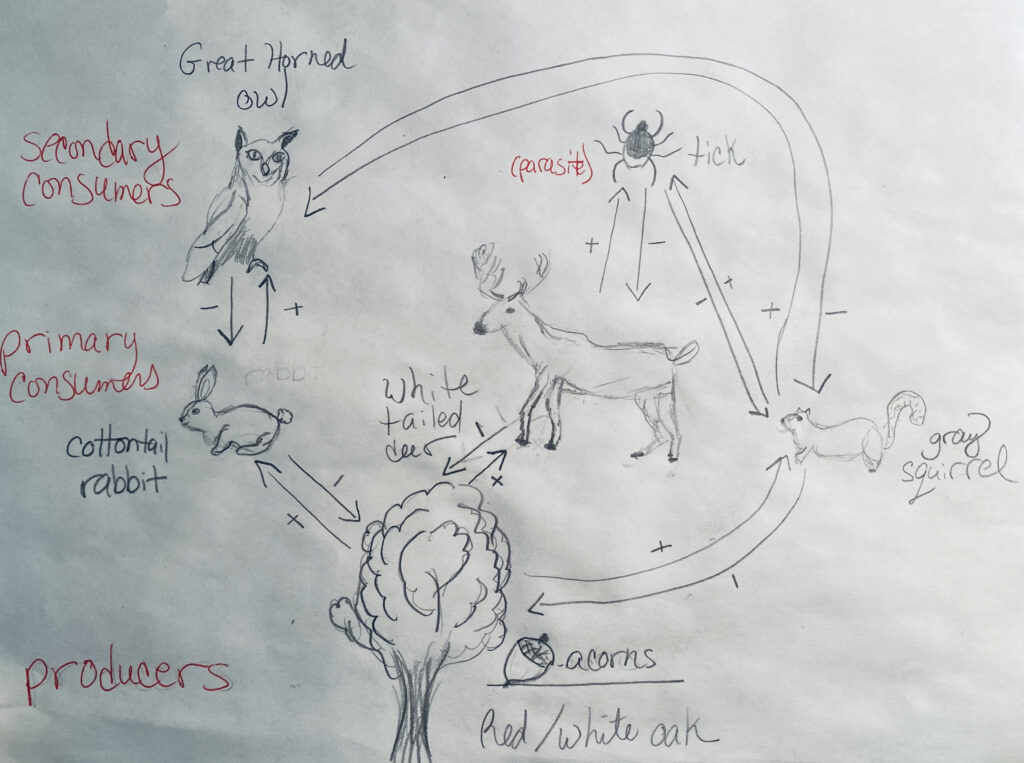 Great Horned
owl
secondary
consumers
(parasite)
tick
+
-
-
+
+
-
-
+
primary
consumers
rabbit
white
tailed
deer
cottontail
rabbit
gray
squirrel
-
x
-
x
+
-
producers
acorns
Red/white oak